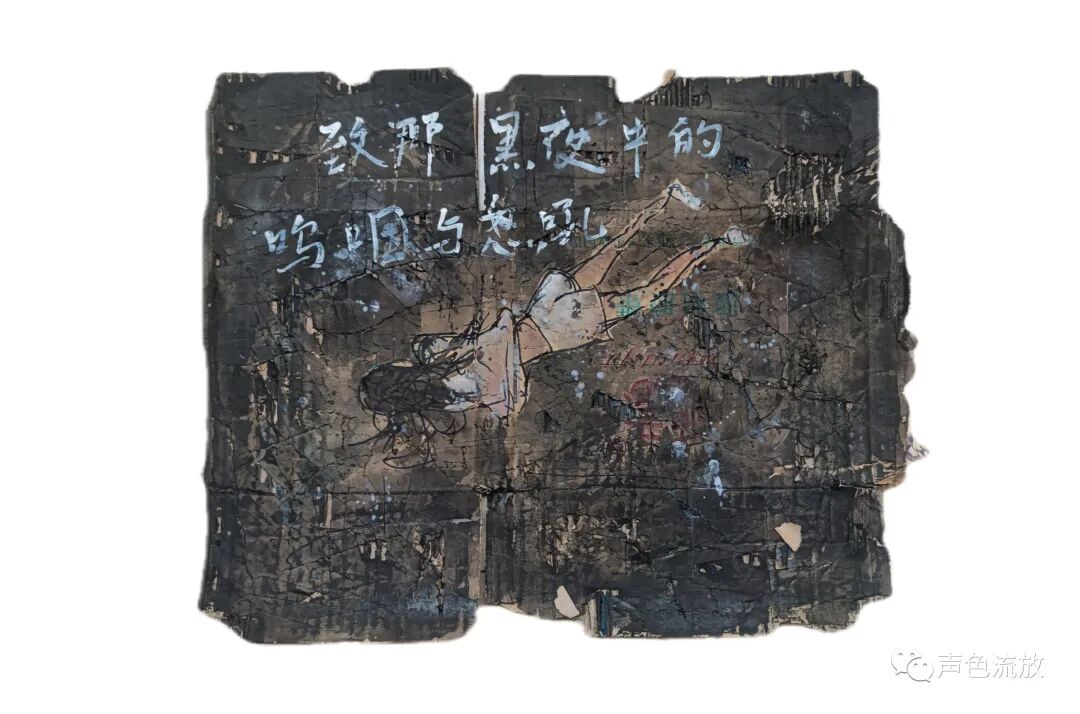 致那黑夜中的
呜咽与怒吼
声色流放